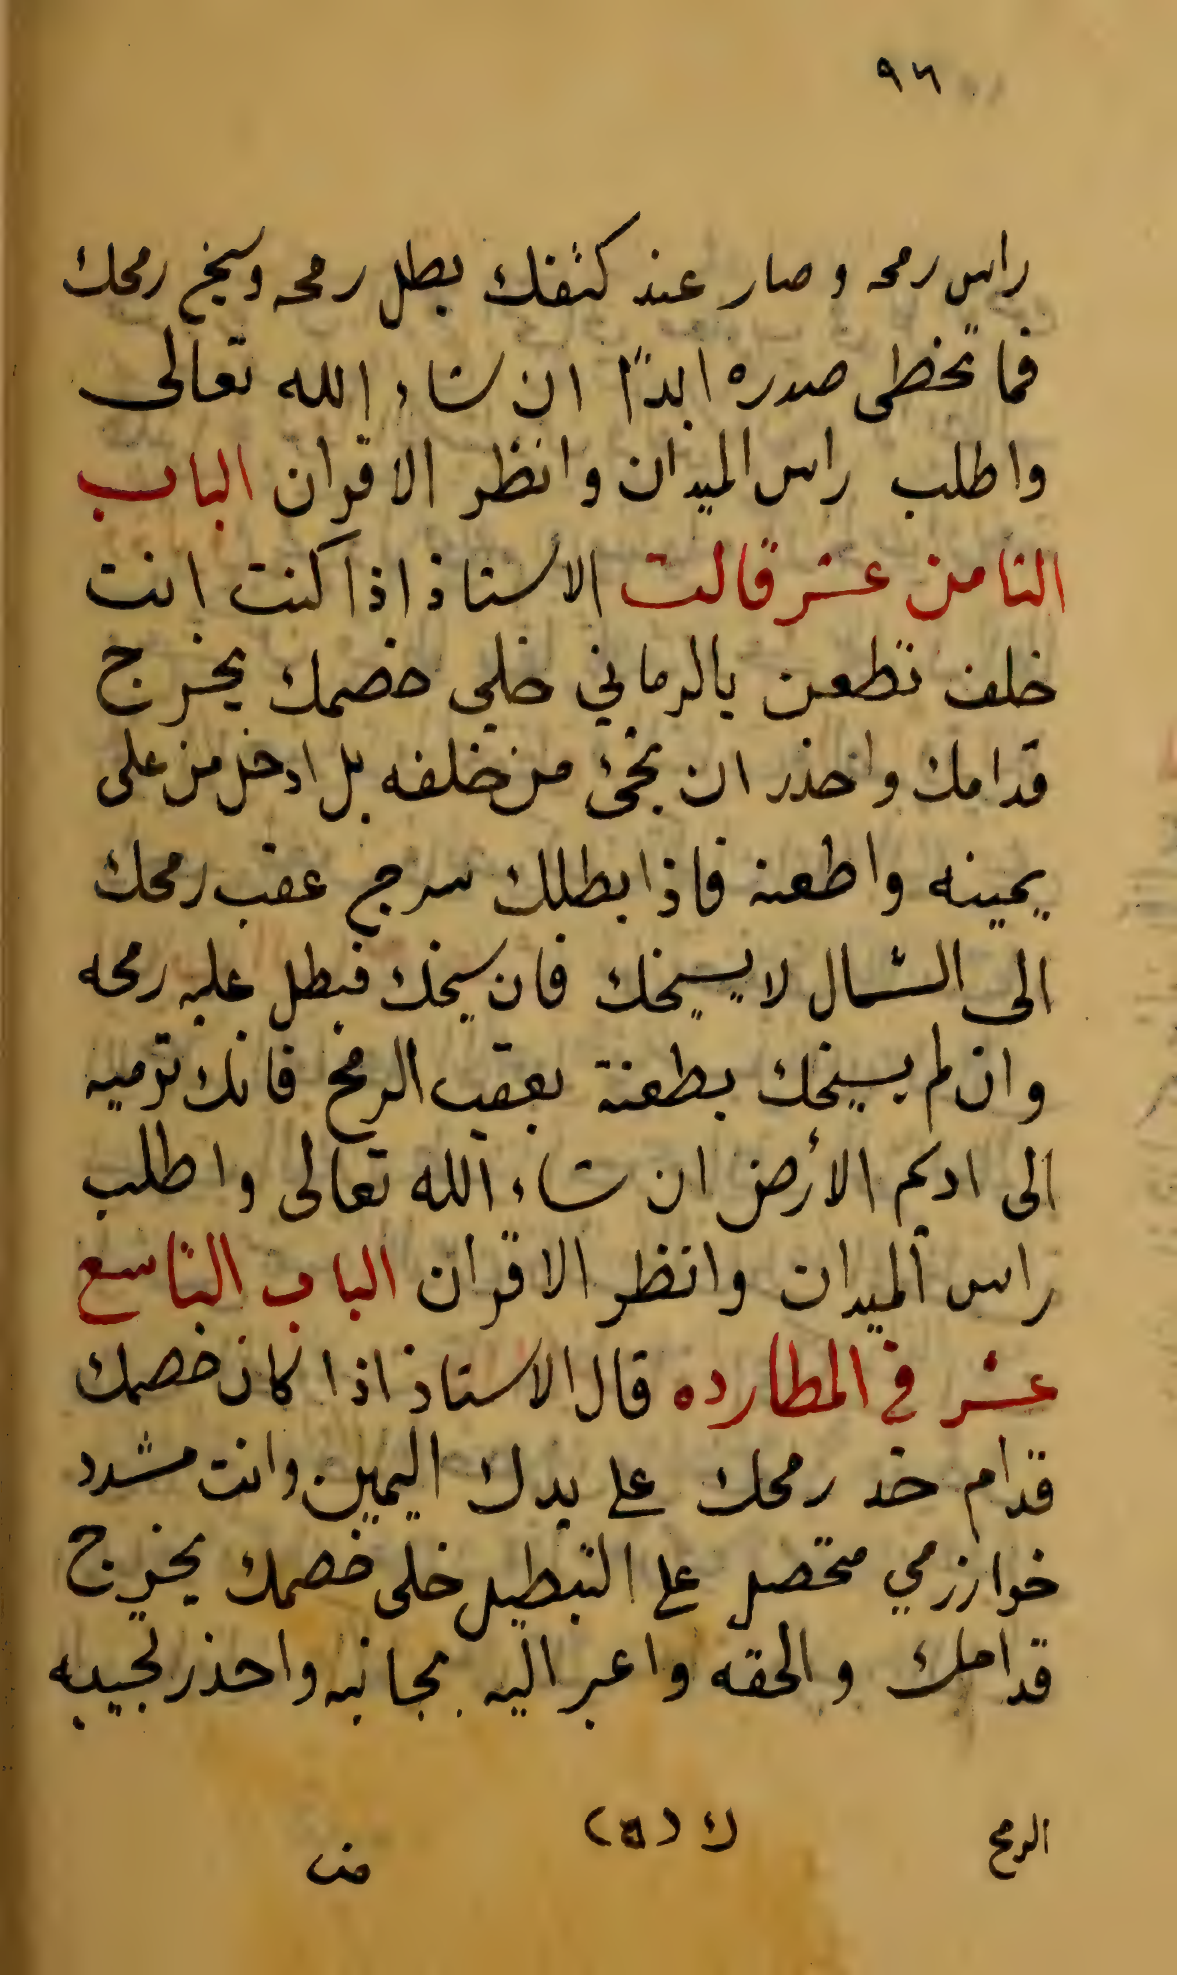 ٩٦
راس رمحه وصار عند كتفك بطل رمحه وسيخ رمحك
فما تخطى صدره ابدًا ان شاء الله تعالى
واطلب راس الميدان وانظر الاقران الباب
الثامن عشر قالت الاستاذ اذا كنت انت
خلف تطعن بالرماني خلي خصمك يخرج
قدامك واحذر ان تجئ من خلفه بل ادخل من على
يمينه واطعنه فاذا بطلك سرج عقب رمحك
الى الشمال لا يسيخك فان سيخك فبطل عليه رمحه
وان لم يسيخك بطعنة بعقب الرمح فانك ترميه
الى اديم الأرض ان شاء الله تعالى واطلب
راس الميدان وانظر الاقران الباب التاسع
عشر في المطارده قال الاستاذ اذا كان خصمك
قدام خد رمحك على يدك اليمين وانت مشدد
خوارزمي متحصل على التبطيل خلى خصمك يخرج
قدامك والحقه واعبر اليه بجانبه واحذر تجيبه
الرمح ك (٥)
من